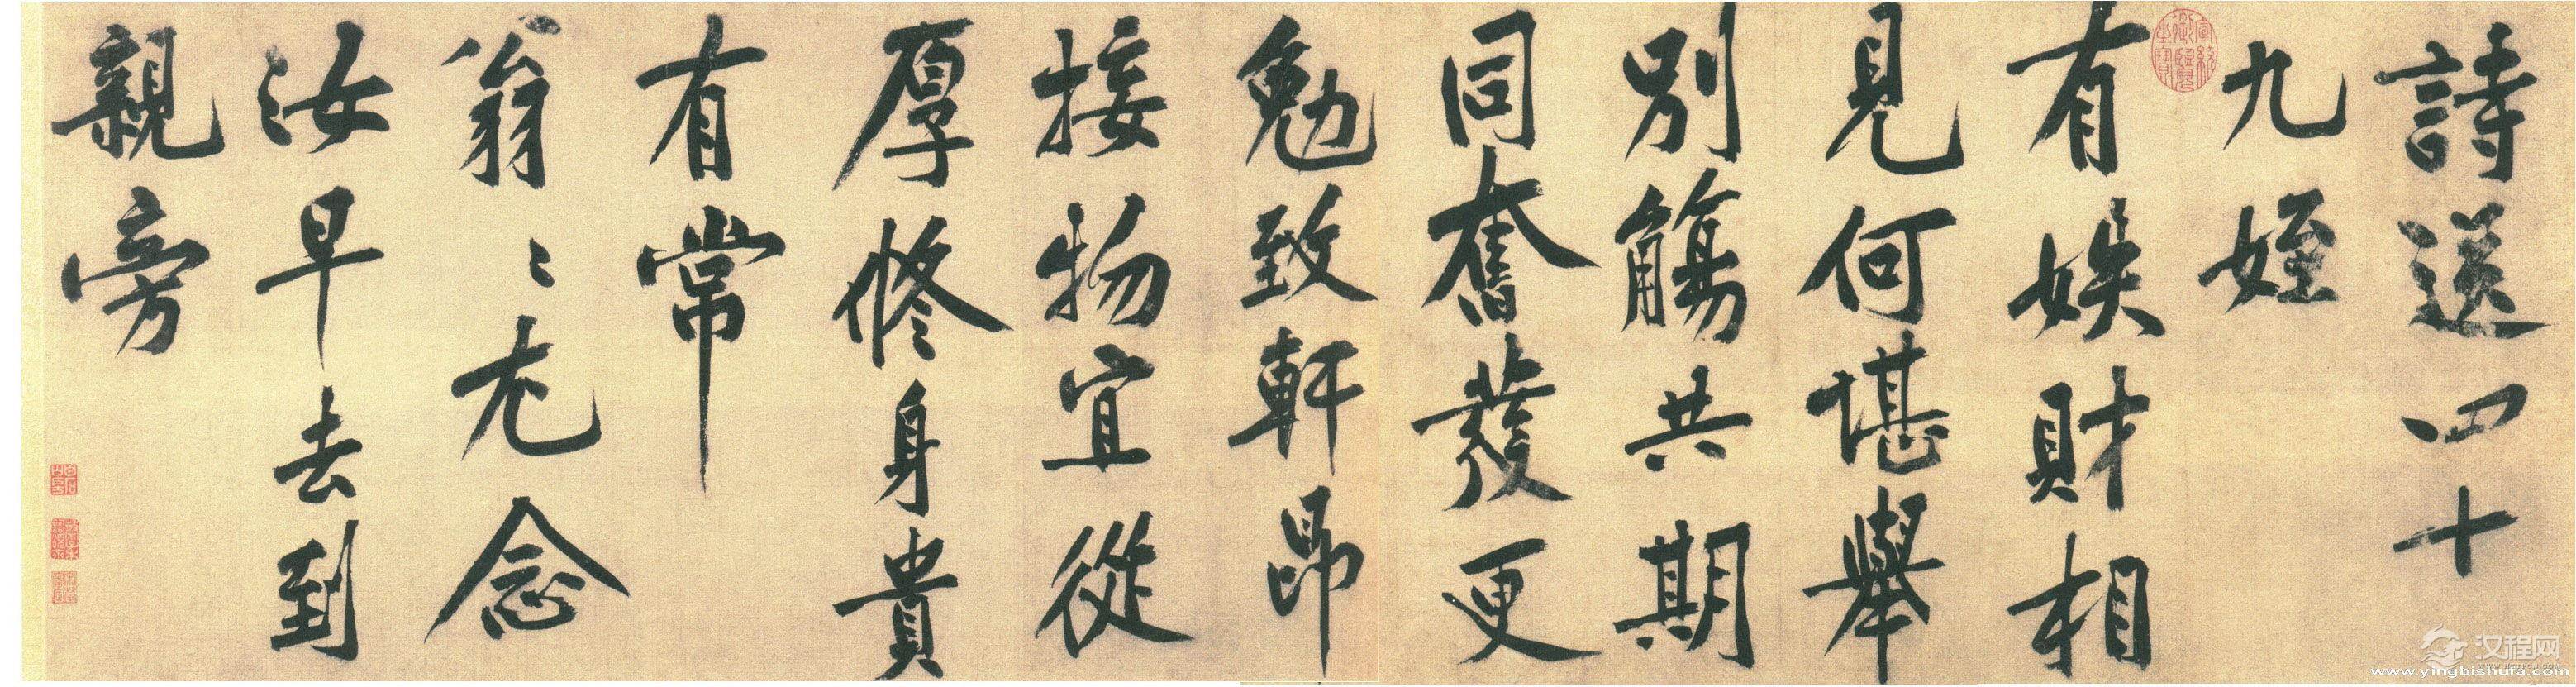 詩送四十
九姪
有娭財相
見何堪舉
別觴共期
同奮發更
勉致軒昂
接物宜從
厚修身貴
有常
翁〻尤念
汝早去到
親旁
宣統御覽之寶
汉程网
www.yingbishufa.com